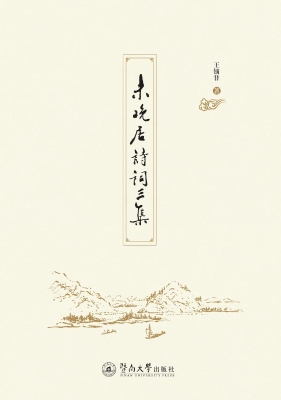 未晚居詩詞三集
王锡丰 著
暨南大学出版社
JINAN UNIVERSITY PRESS